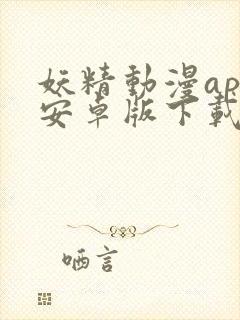 妖精動漫ap
安卓版下載
哂言